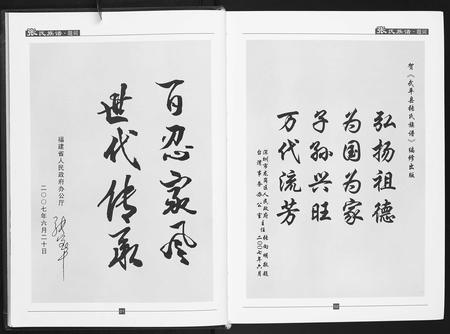 张氏族谱·题词
百忍家风
世代传承
福建省人民政府办公厅
二〇〇七年六月二十日
张氏族谱·题词
贺《武平县张氏族谱》编修出版
弘扬祖德
为国为家
子孙兴旺
万代流芳
深圳市龙岗区人民政府主任张向明敬题
台湾事务办公室
二〇〇七年六月